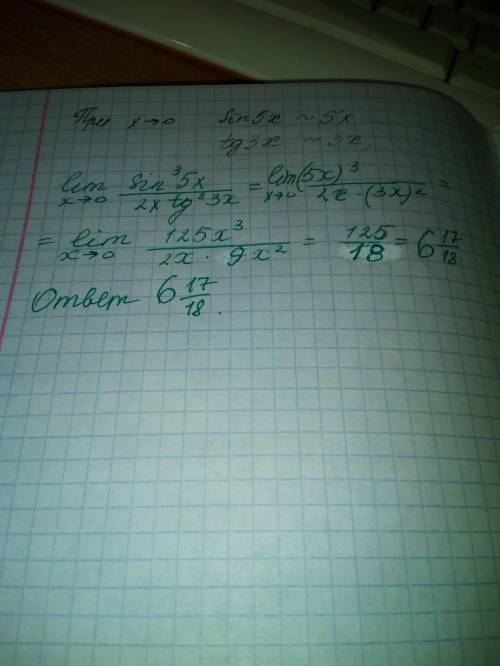 При x→0 sin5x ~ 5x
tg3x ~ 3x,
lim x→0 sin³5x / 2x tg²3x = lim x→0 (5x)³ / 2x · (3x)² =
= lim x→0 125x³ / 2x · 9x² = 125/18 = 6 17/18
Ответ 6 17/18.